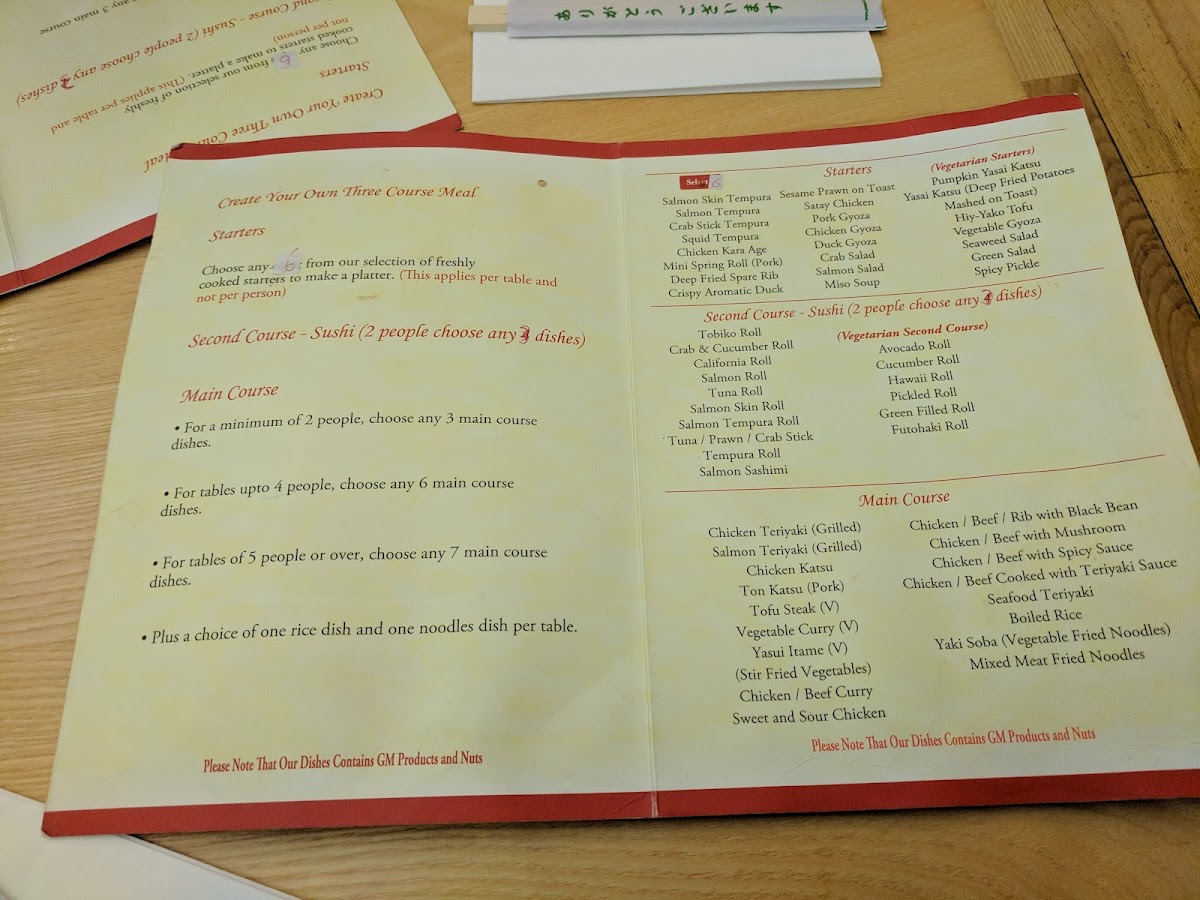 ありがとう ございます
any 3 main course
ond Course - Sushi (2 people choose any 3 dishes)
not per person)
cooked starters to make a platter. (This applies per table and
Choose any 6 from our selection of freshly
Starters
Create Your Own Three Cou
eal
Create Your Own Three Course Meal
Starters
Choose any 6 : from our selection of freshly
cooked starters to make a platter. (This applies per table and
not per person)
Second Course - Sushi (2 people choose any 3 dishes)
Main Course
• For a minimum of 2 people, choose any 3 main course
dishes.
• For tables upto 4 people, choose any 6 main course
dishes.
• For tables of 5 people or over, choose any 7 main course
dishes.
• Plus a choice of one rice dish and one noodles dish per table.
Please Note That Our Dishes Contains GM Products and Nuts
Starters
Select 6
Salmon Skin Tempura
Salmon Tempura
Crab Stick Tempura
Squid Tempura
Chicken Kara Age
Mini Spring Roll (Pork)
Deep Fried Spare Rib
Crispy Aromatic Duck
Sesame Prawn on Toast
Satay Chicken
Pork Gyoza
Chicken Gyoza
Duck Gyoza
Crab Salad
Salmon Salad
Miso Soup
(Vegetarian Starters)
Pumpkin Yasai Katsu
Yasai Katsu (Deep Fried Potatoes
Mashed on Toast)
Hiy-Yako Tofu
Vegetable Gyoza
Seaweed Salad
Green Salad
Spicy Pickle
Second Course - Sushi (2 people choose any 3 dishes)
Tobiko Roll
Crab & Cucumber Roll
California Roll
Salmon Roll
Tuna Roll
Salmon Skin Roll
Salmon Tempura Roll
Tuna / Prawn / Crab Stick
Tempura Roll
Salmon Sashimi
(Vegetarian Second Course)
Avocado Roll
Cucumber Roll
Hawaii Roll
Pickled Roll
Green Filled Roll
Futohaki Roll
Main Course
Chicken Teriyaki (Grilled)
Salmon Teriyaki (Grilled)
Chicken Katsu
Ton Katsu (Pork)
Tofu Steak (V)
Vegetable Curry (V)
Yasui Itame (V)
(Stir Fried Vegetables)
Chicken / Beef Curry
Sweet and Sour Chicken
Chicken / Beef / Rib with Black Bean
Chicken / Beef with Mushroom
Chicken / Beef with Spicy Sauce
Chicken / Beef Cooked with Teriyaki Sauce
Seafood Teriyaki
Boiled Rice
Yaki Soba (Vegetable Fried Noodles)
Mixed Meat Fried Noodles
Please Note That Our Dishes Contains GM Products and Nuts